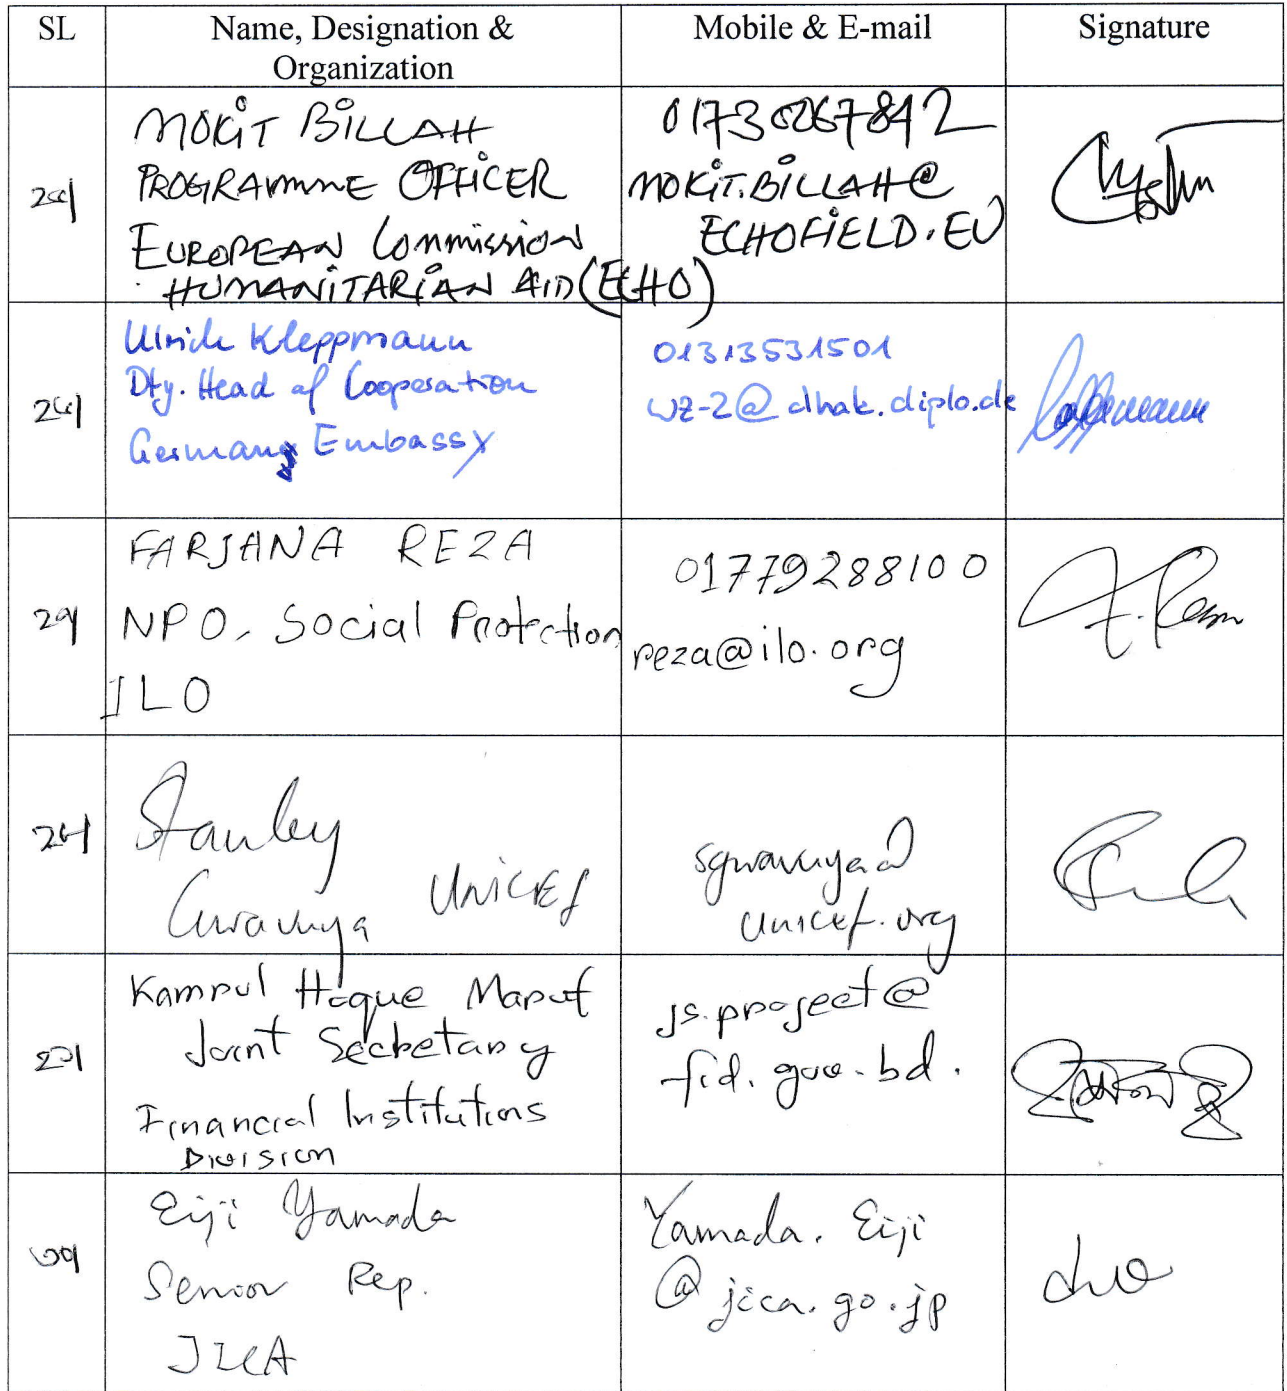 SL
Name, Designation &
Organization
Mobile & E-mail
Signature
২৫।
MOKIT BILLAH
PROGRAMME OFFICER
EUROPEAN COMMISSION
HUMANITARIAN AID (ECHO)
01730067842
MOKIT.BILLAH@
ECHOFIELD.EU
২৬।
Ulrich Kleppmann
Dty. Head of Cooperation
German Embassy
01313531501
wz-2@dhak.diplo.de
২৭।
FARJANA REZA
NPO, Social Protection
ILO
01779288100
reza@ilo.org
২৮।
Stanley
Gwavuya UNICEF
sgwavuya@
unicef.org
২৯।
Kamrul Hoque Maruf
Joint Secretary
Financial Institutions
Division
js.project@
fid.gov.bd.
৩০।
Eiji Yamada
Senior Rep.
JICA
Yamada.Eiji
@jica.go.jp